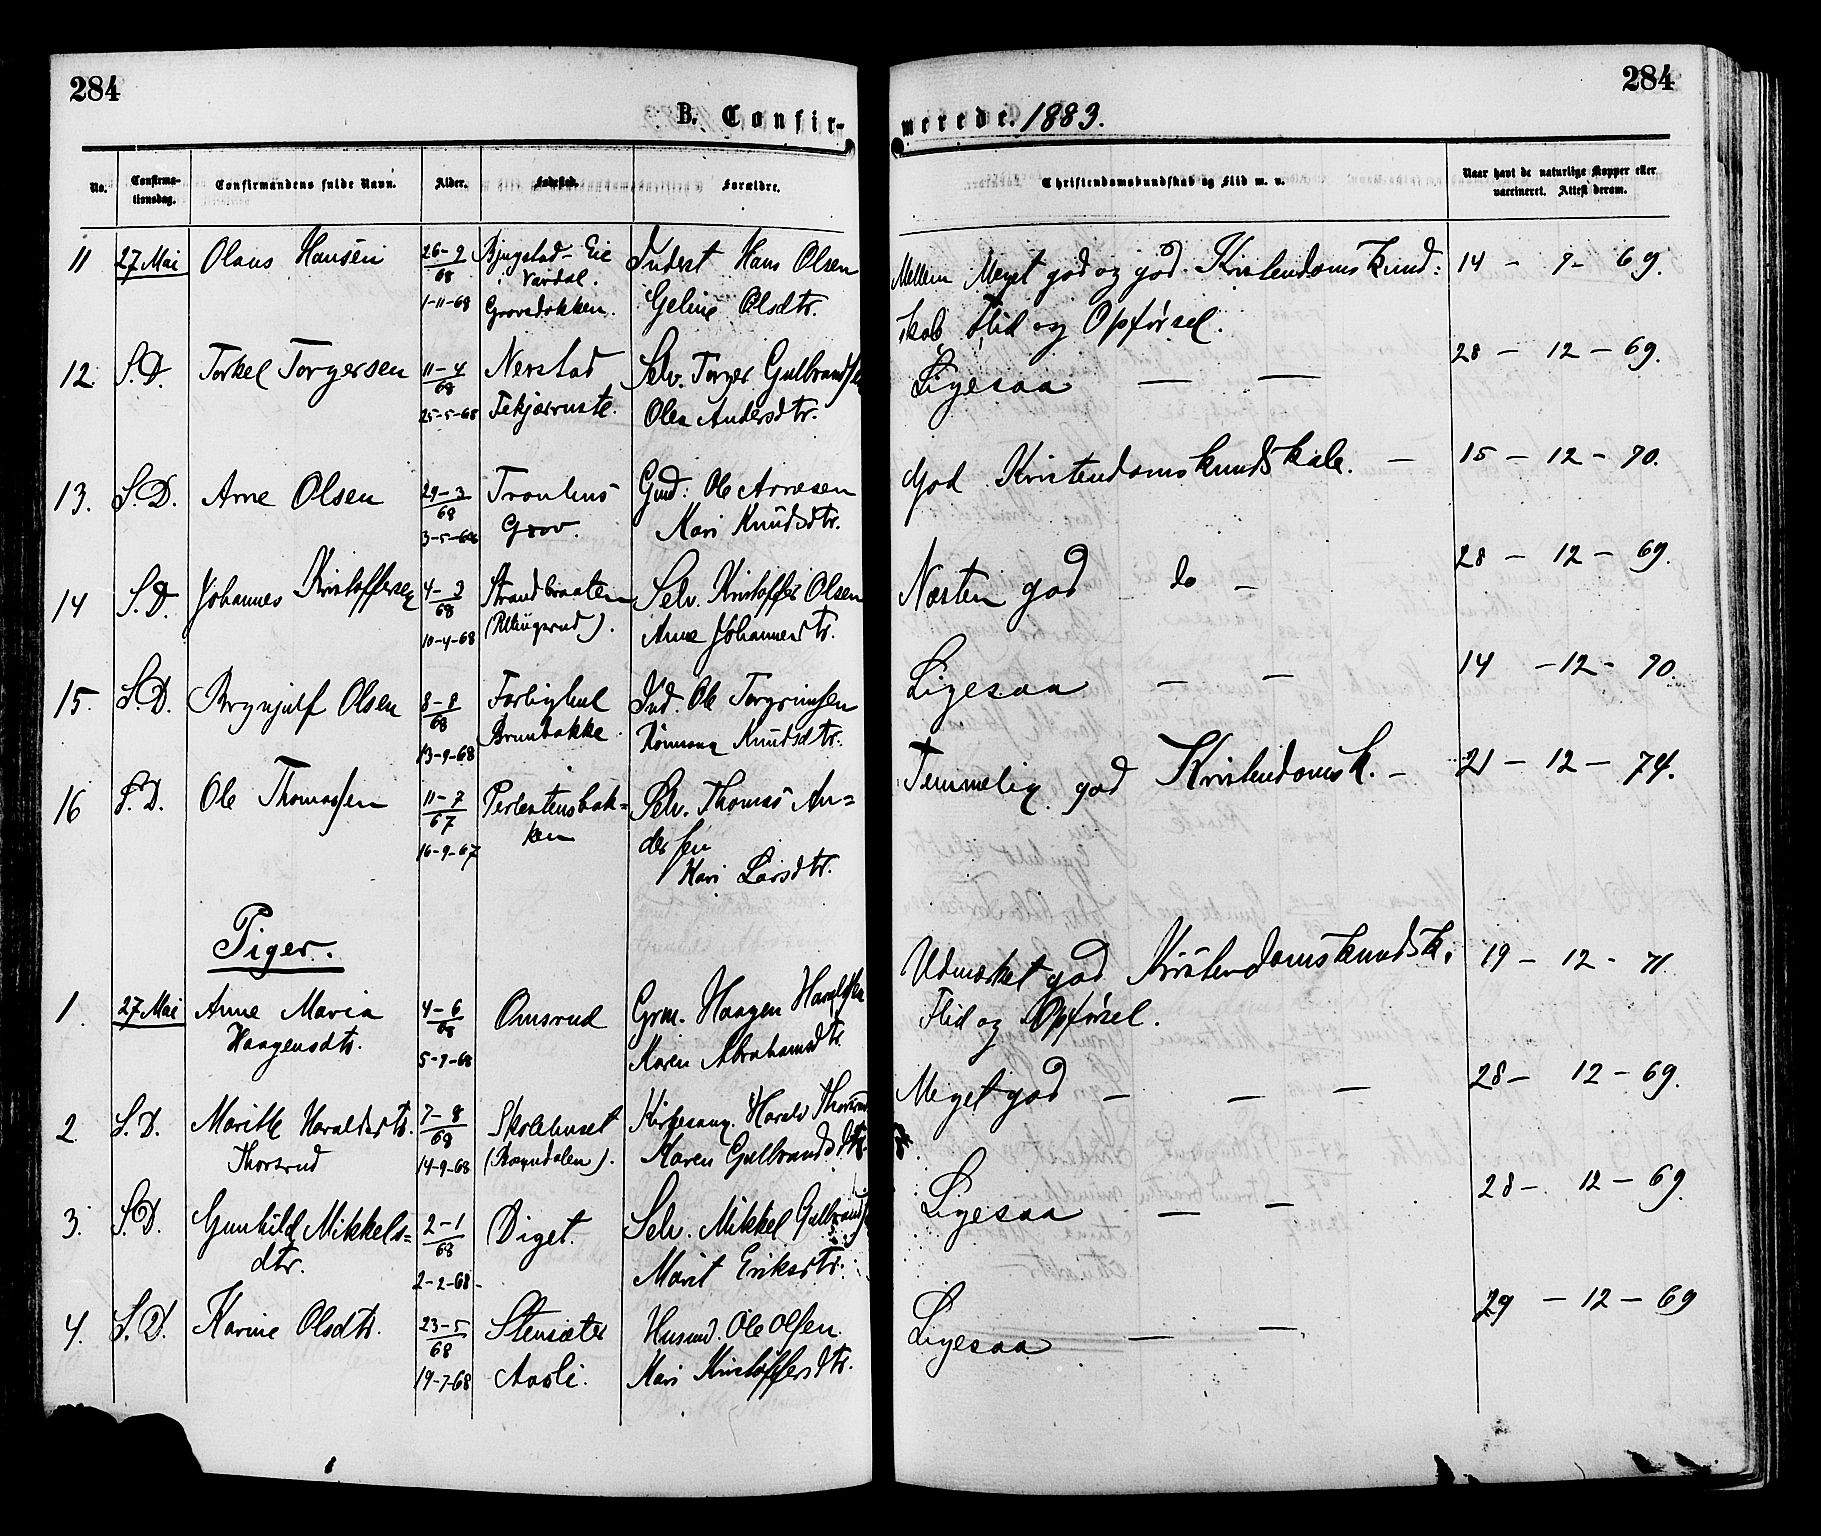 284
284
B. Confir-
merede. 1883.
No.
Confirma-
tionsdag.
Confirmandens fulde Navn.
Alder.
Fødested.
Forældre.
Christendomskundskab og Flid m. v.
Naar havt de naturlige Kopper eller
vaccineret. Attest derom.
11 27 Mai Olaus Hansen 26-9 Eie Inderst Hans Olsen
68 Vardal.
1-11-68 Geline Olsdtr.
Mellem Meget god og god Kristendomskund: 14 - 9 - 69.
skab, Flid og Opførsel.
12 S.D. Torkel Torgersen 11-4 Nerstad Selv. Torger Gulbrandsen
68
25-5-68 Olea Andersdtr.
Ligesaa — — 28 - 12 - 69.
13. S.D. Arne Olsen 29-3 Gmd: Ole Arnesen
68
3-5-68 Grov. Mari Knudsdtr.
God Kristendomskundskab. — 15 - 12 - 70.
14 S.D. Johannes Kristoffersen 4-3 Strandbraaten Selv. Kristoffer Olsen
68
10-4-68 Anne Johannesdtr.
Næsten god do - 28 - 12 - 69.
15. S.D. Brynjulf Olsen 8-8 Ind. Ole Torgrimsen
68
13-9-68 Brunbakke Knudsdtr.
Ligesaa — — 14 - 12 - 70.
16 S.D. Ole Thomassen 11-7 Selv. Thomas An=
67 ken dersen
16-9-67 Kari Larsdtr.
Temmelig god Kristendomsk. - 21 - 12 - 74.
Piger.
1. 27 Mai Anne Maria 4-6 Omsrud Grm. Haagen Haraldsen
Haagensdtr. 68
5-7-68 Karen Abrahamsdtr
Udmærket god Kristendomskundsk. 19 - 12 - 71
Flid og Opførsel.
2. S.D. Marithe Haraldsdtr. 7-8 Skolehuset Kirkesang. Harald Thorsrud
Thorsrud 68
14-9-68 Karen Gulbrandsdtr
Meget god — — — 28 - 12 - 69.
3. S.D. Gunhild Mikkels= 2-1 Diget. Selv. Mikkel Gulbrandsen
dtr. 68
2-2-68- Marit Eriksdtr.
Ligesaa — — 28 - 12 - 69.
4. S.D. Karine Olsdtr. 23-5 Stensæter Husmd. Ole Olsen
68
19-7-68 Aasli. Mari Kristoffersdtr.
Ligesaa — — 29 - 12 - 69